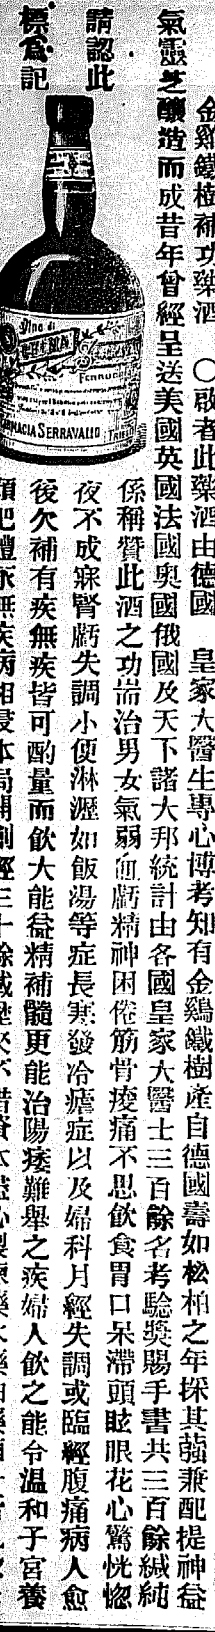 金鷄鐵樹補功藥酒 〇啟者此藥酒由德國 皇家大醫生專心博考知有金鷄鐵樹產自德國壽如松柏之年採其蘂兼配提神益
氣靈芝釀造而成昔年曾經呈送美國英國法國奧國俄國及天下諸大邦統計由各國皇家大醫士三百餘名考驗獎賜手書共三百餘緘純
請認此
標為記
係稱贊此酒之功耑治男女氣弱血虧精神困倦筋骨痠痛不思飲食胃口呆滯頭眩眼花心驚恍惚
夜不成寐腎虧失調小便淋瀝如飯湯等症長寒發冷瘧症以及婦科月經失調或臨經腹痛病人愈
後欠補有疾無疾皆可酌量而飲大能益精補髓更能治陽痿難舉之疾婦人飲之能令溫和子宮養
Vino di
CHINA
Ferruginoso
FARMACIA SERRAVALLO TRIESTE